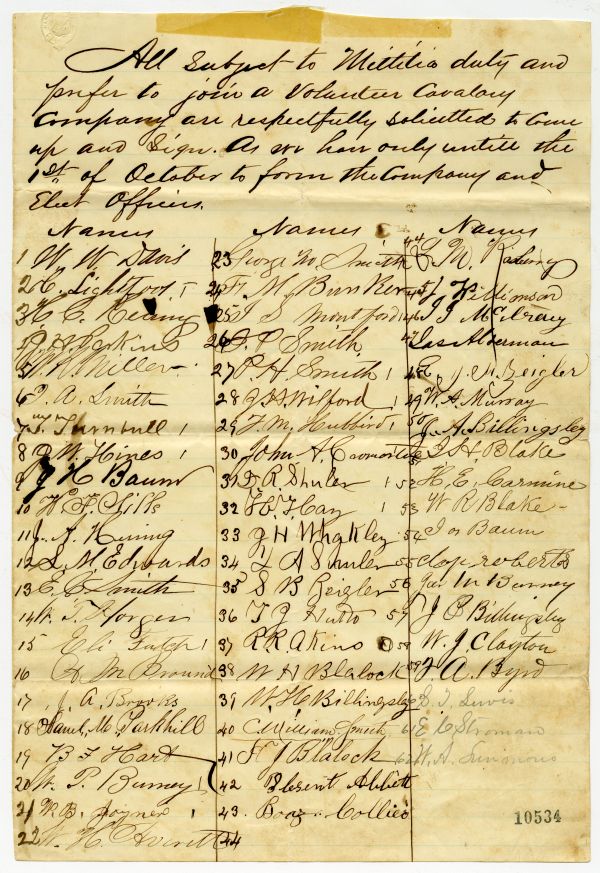 All Subject to Millitia duty and
prefer to join a Volunteer Cavalary
Company are respectfully solicitted to Come
up and Sign. As we have only untill the
1st of October to form the Company and
Elect Officers.
Names
1 W W Davis
2 Lightfoot
3 H C
4 Perkins
5 Miller
6 A. Smith
7 Turnbull
8 W. Hines
9 J H Baum
10 W F Chills
11 J. A.
12 L M Edwards
13 E. B Smith
14 W. T. Horger
15 Eli Futch
16 M
17 J. A. Brooks
18 Saml. M. Parkhill
19 B F Hart
20 W. P. Burney
21 W. B. Joyner
22 W. H. Averett
Names
23 George W. Smith
24 M Bunker
25 Montford
26 J. P Smith
27 P. H Smith
28 Wilford
29 F. M. Hubbird
30 John A.
31 R Shuler
32 Hay
33 J H Whakley
34 L A Shuler
35 S B Zeigler
36 T J Hutto
37 R. R. Akins
38 W H Blalock
39 W. H Billingsley
40 William Smith
41 H J Blalock
42 Abbott
43 Collier
44
Names
44 M.
45 J Williamson
46 J J McElray
47 Jas Alderman
48 J. Zeigler
49 W. A. Murray
50 J. A. Billingsley
51 J H Blake
52 H. E. Carmine
53 W R Blake
54 Baum
55 roberts
56 Burney
57 J C Billingsley
58 W. J Clayton
59 J A. Byrd
60 Lewis
61 E Stroman
62 W. A. Simmons
10534